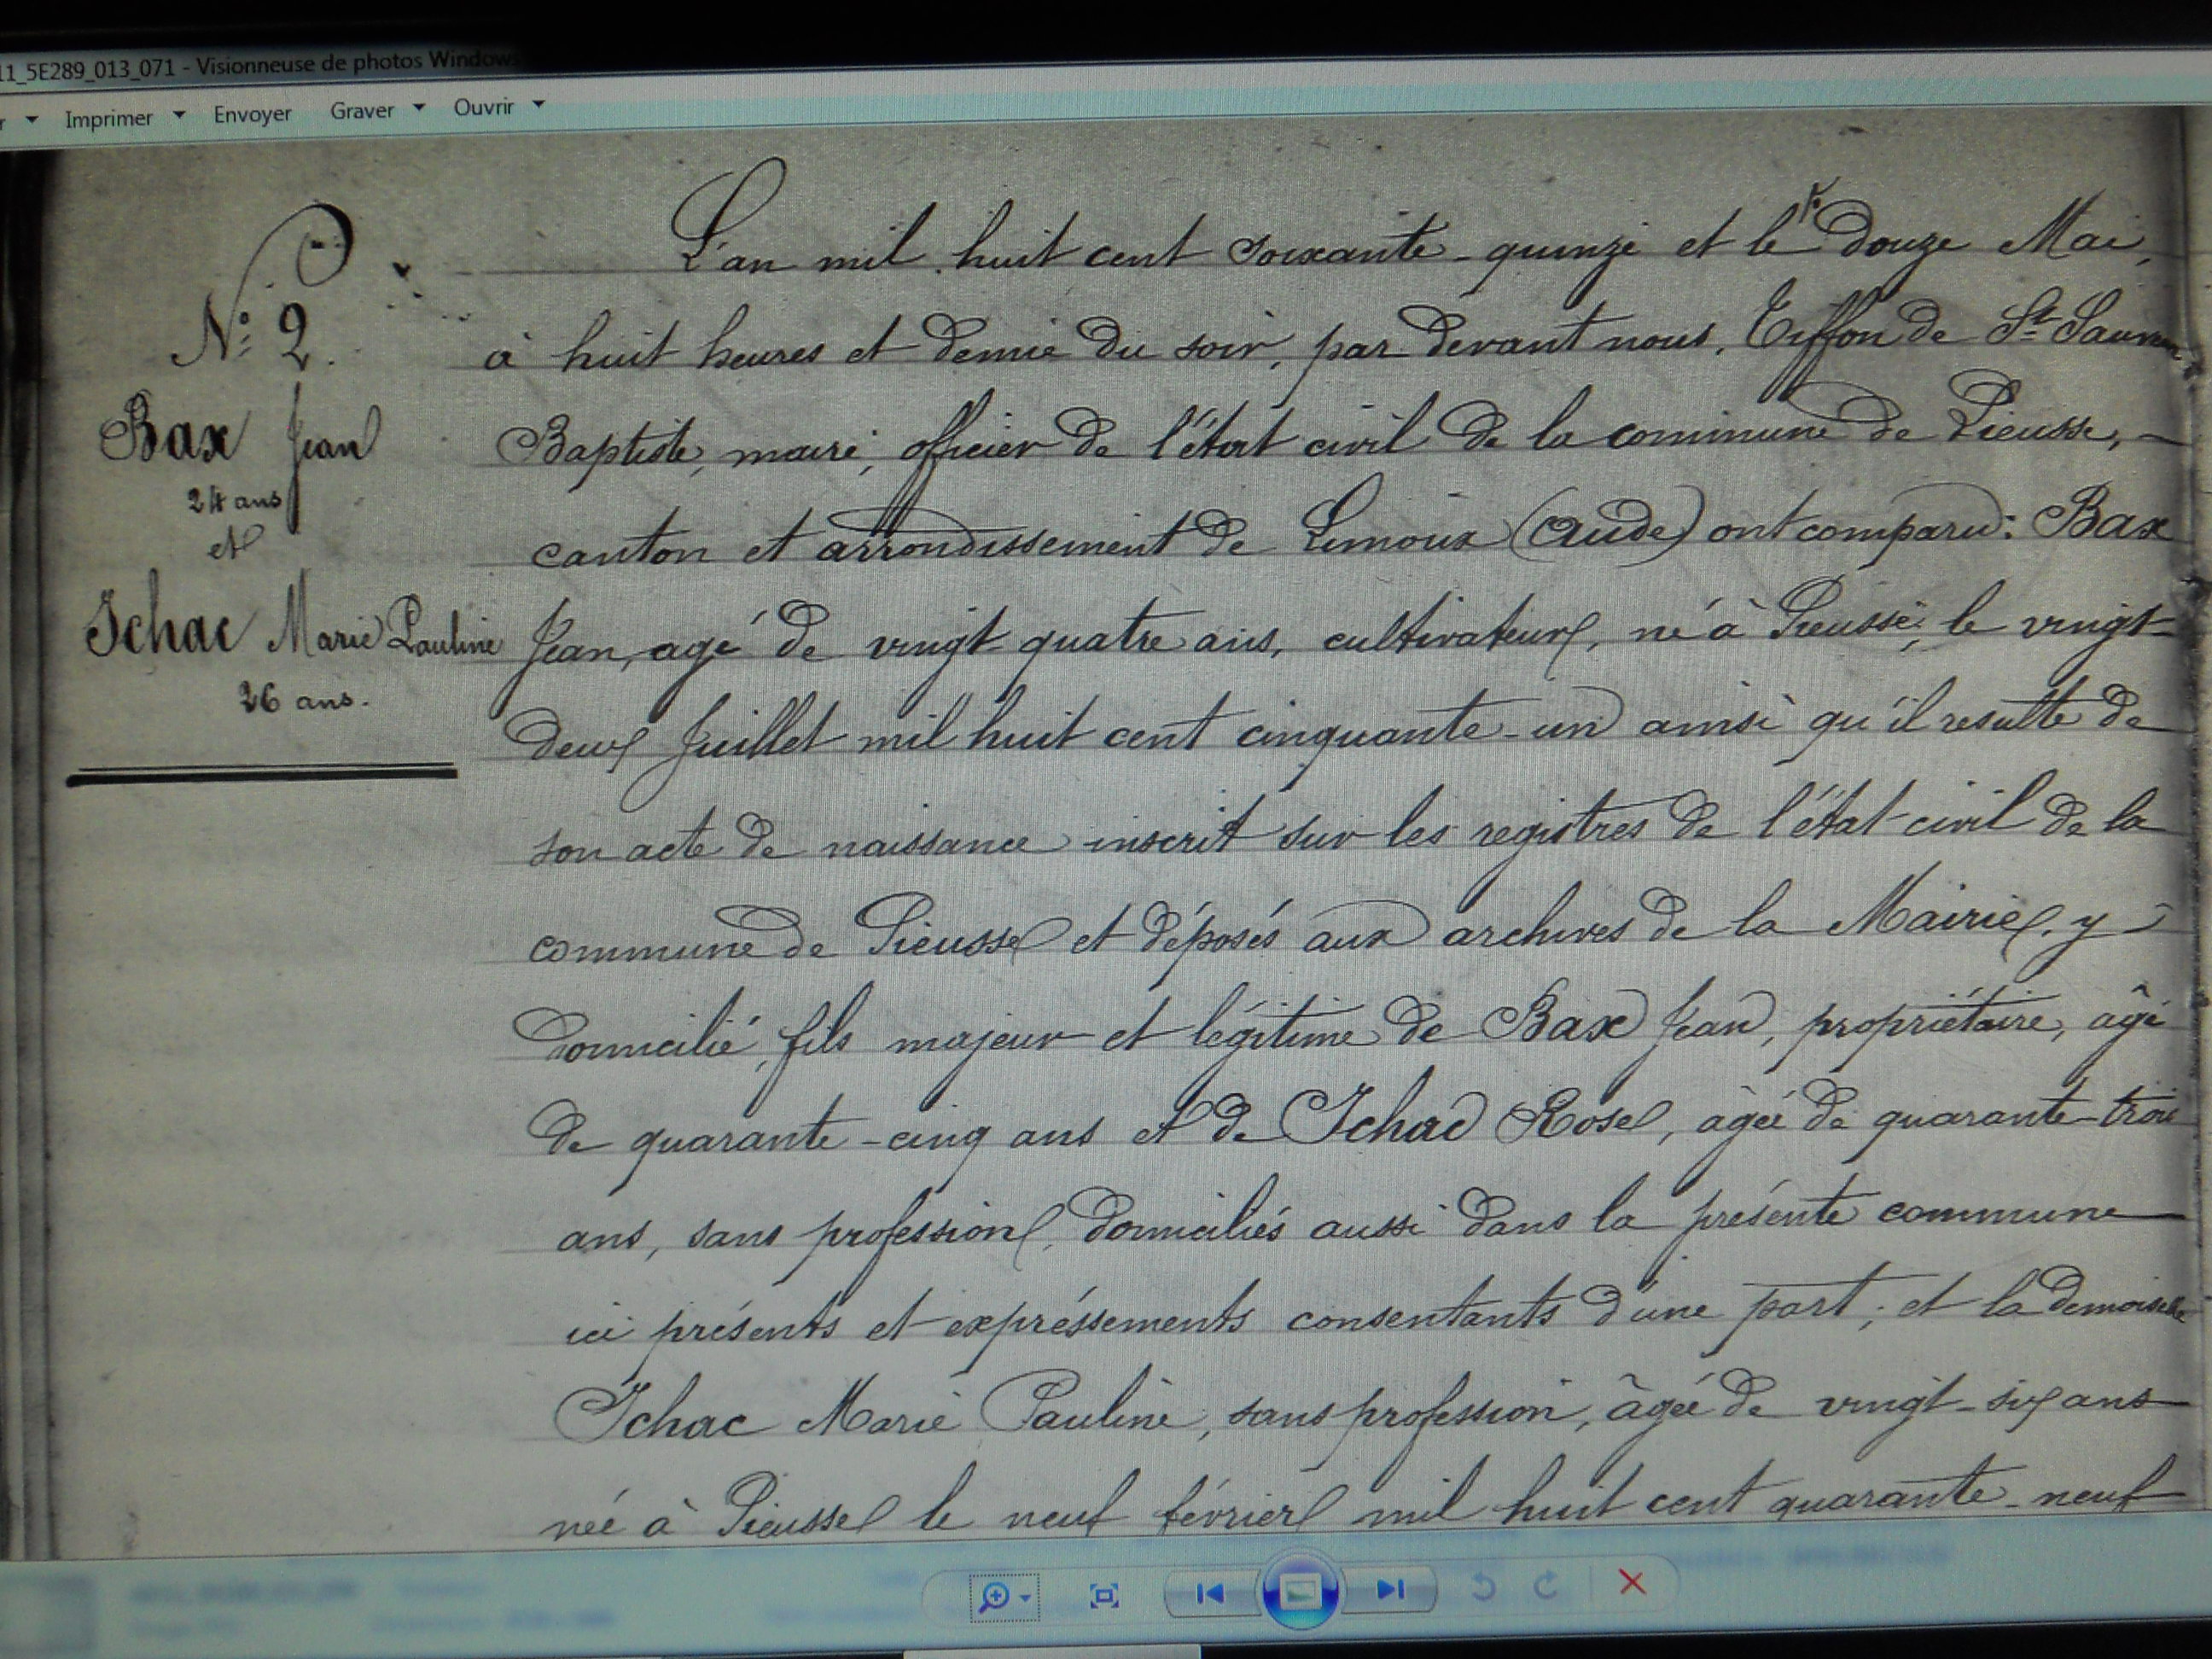 11_5E289_013_071 - Visionneuse de photos Windows
Imprimer Envoyer Graver Ouvrir
N° 2.
Bax Jean
24 ans
et
Ichac Marie Pauline
26 ans.
L'an mil huit cent soixante-quinze et le douze Mai,
à huit heures et demie du soir, par devant nous, Tiffon de St
Baptiste, maire, officier de l'état civil de la commune de Pieusse, –
canton et arrondissement de Limoux (Aude) ont comparu: Bax
Jean, agé de vingt quatre ans, cultivateur, né à Pieusse, le vingt-
deux Juillet mil huit cent cinquante-un ainsi qu'il resulte de
son acte de naissance inscrit sur les registres de l'état civil de la
commune de Pieusse et déposés aux archives de la Mairie, y
domicilié, fils majeur et légitime de Bax Jean, propriétaire, âgé
de quarante-cinq ans et de Ichac Rose, âgée de quarante-trois
ans, sans profession, domiciliés aussi dans la présente commune
ici présents et expréssements consentants d'une part; et la demoiselle
Ichac Marie Pauline, sans profession, âgée de vingt-six ans
née à Pieusse le neuf février mil huit cent quarante-neuf